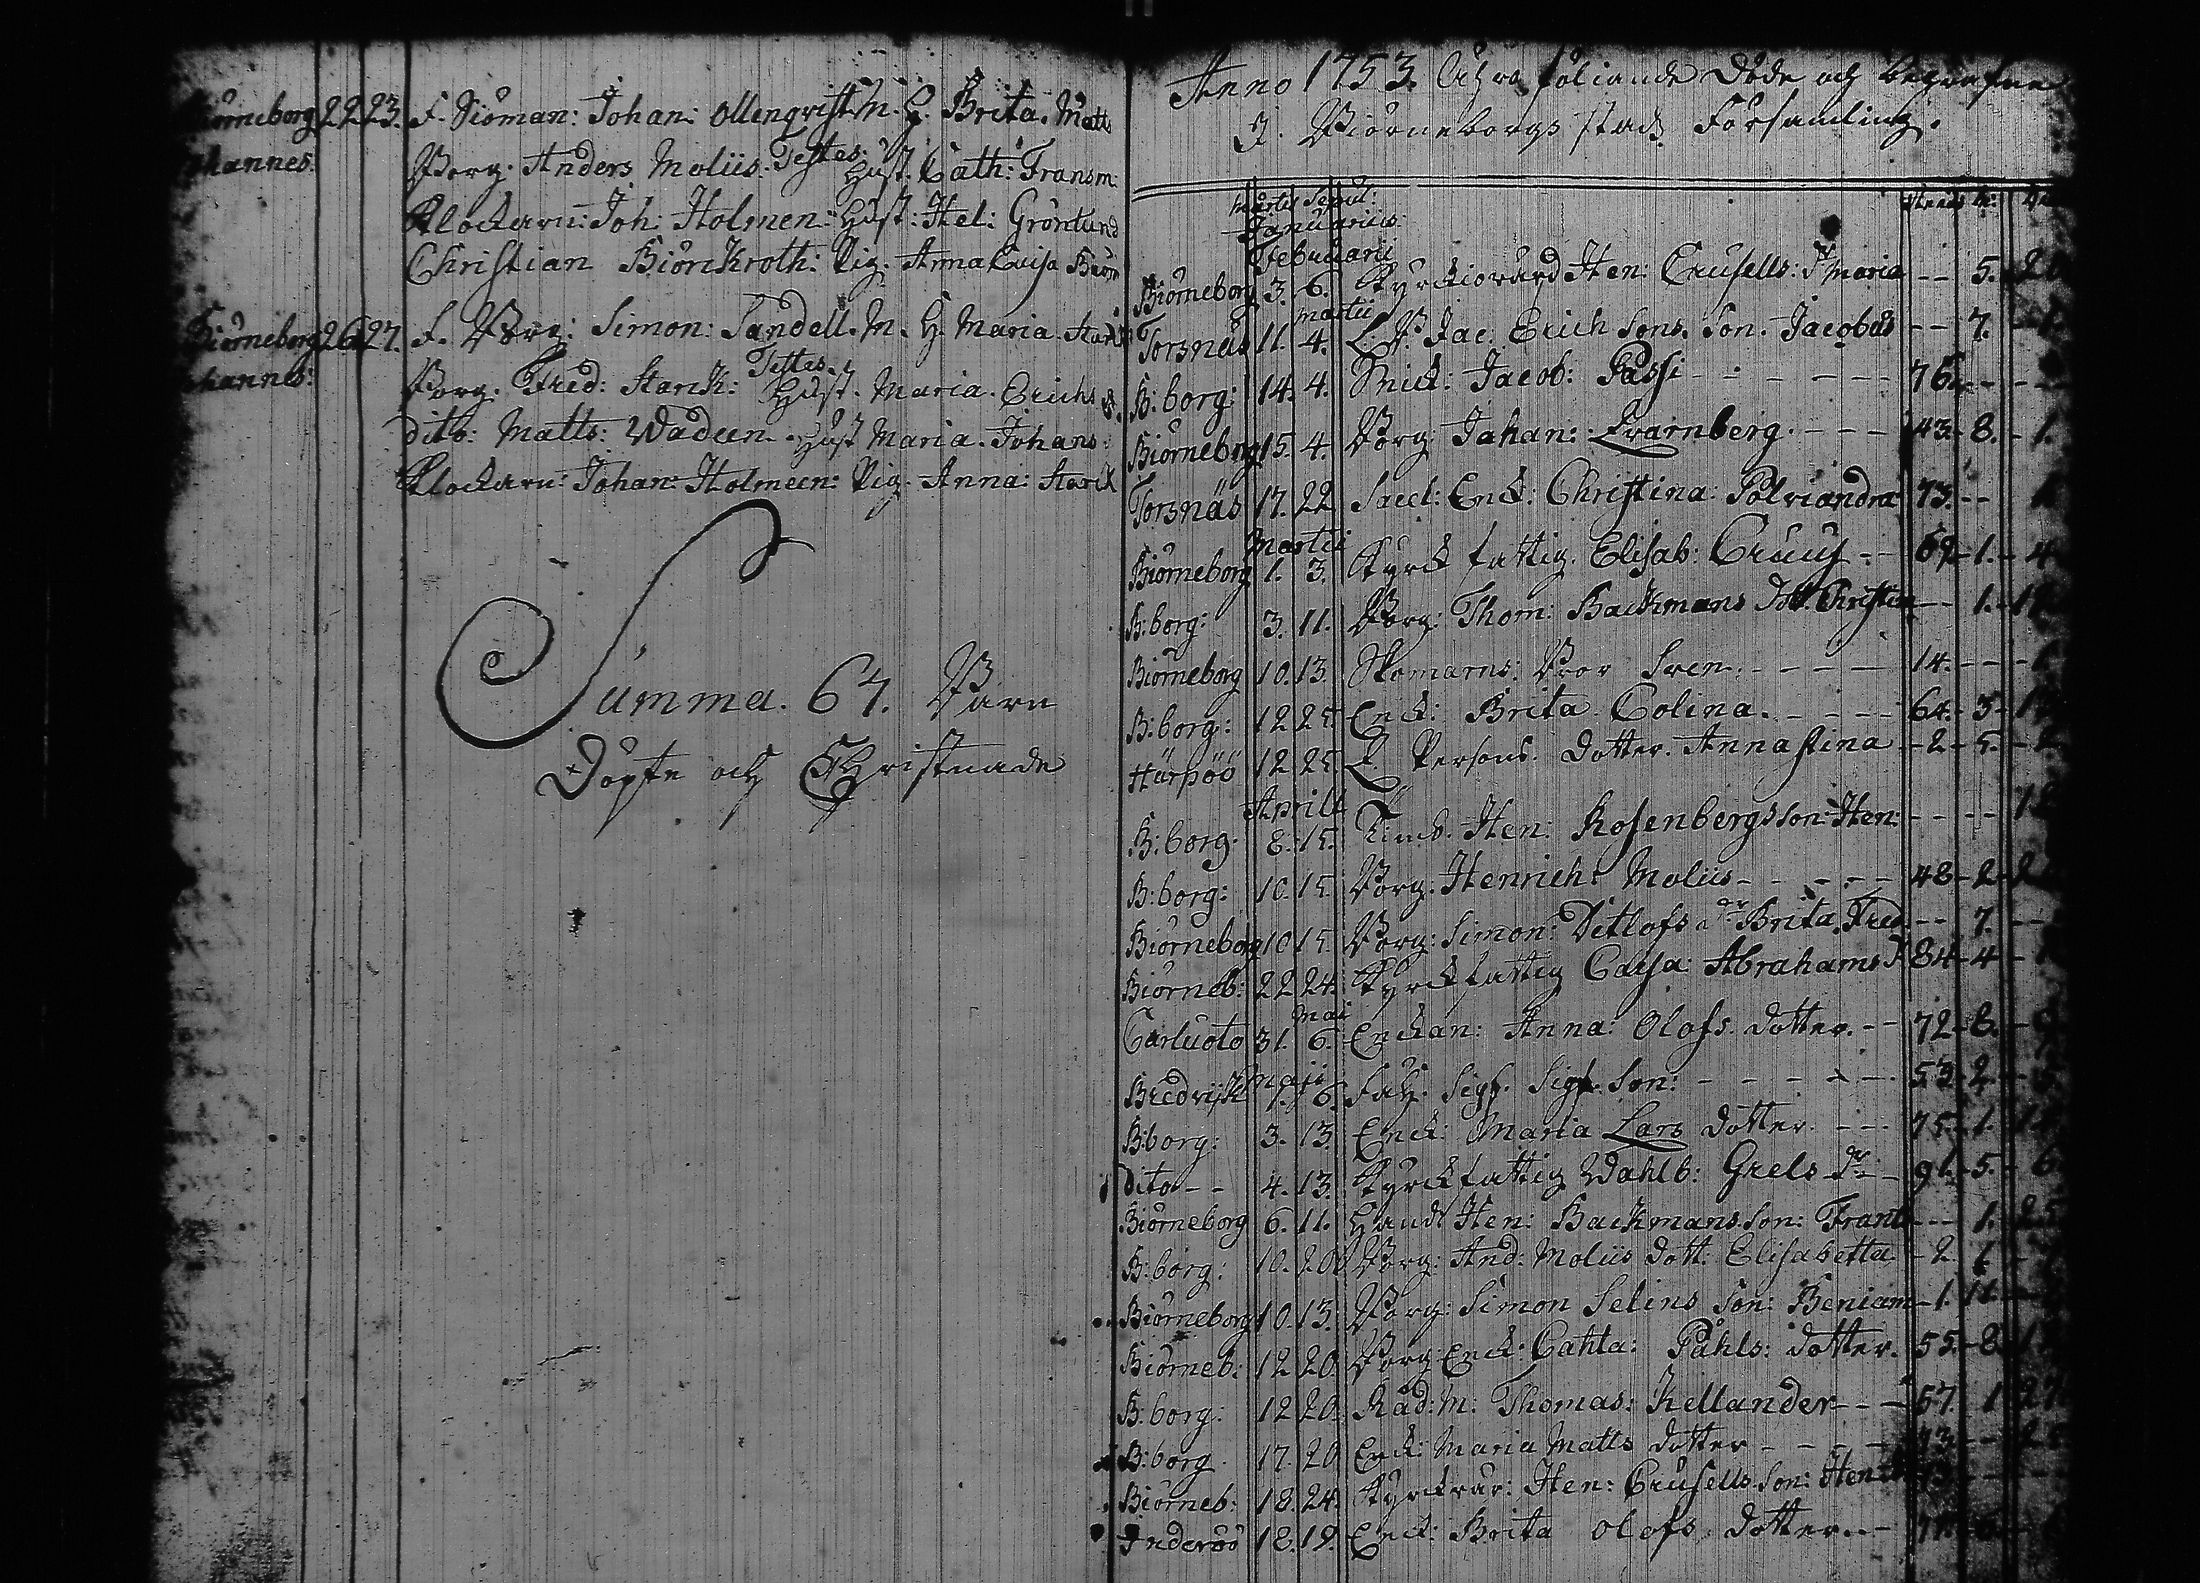 Biörneborg 22 23. F. Siöman: Johan: Ollenqvist M. H. Brita. Matts
Johannes. Borg. Anders Moliis. Testes. Hust. Cath: Fransm
Klockarn: Joh: Holmen: Hust: Hel: Grönlund
Christian Biörckroth: Pig. Anna Luisa Biörn
Biörneborg 26 27. F. Borg: Simon: Sandell. M. H. Maria. Starck
Johannes: Borg. Fred: Starck: Testes. Hust. Maria. Erichs d.
dito: Matts: Wadeen. Hust Maria. Johans:
Klockarn: Johan: Holmeen: Pig. Anna: Starck
Summa. 64. Barn
Döpte och Christnade
Anno 1753. Ähro följande Döde och Begrafne
I. Biörneborgs stads Församling.
Mortis Sepul:
Januarius.
Februarii
Biörneborg 3. 6. Kyrckiovärd Hen: Crusells: dr Maria -- 5. 20
Martii
Torsnäs 11. 4. L. B. Jac: Erich Sons. Son. Jacobus -- 7. -
B: borg: 14. 4. Jacob: Passi - - - - - - 76. - - -
Biörneborg 15. 4. Borg: Johan: Qvarnberg. - - - 43. 8. - 1.
Torsnäs 17. 22 Saed: Enck: Christina: Polviandra 73. - -
Martii
Biörneborg 1. 3. Kyrck fattig. Elisab: Cruus - - 69 - 1. - 4
B: borg: 3. 11. Borg: Thom: Backmans dot. Christin -- 1. -
Biörneborg 10. 13. Skomarns: Bror Sven. - - - - 14. - - -
B: borg: 12 25. Enck: Brita Colina. - - - - 64. - 3 -
Härpöö 12 25. L. Persons. Dotter. Anna Stina - 2 - 5. -
Aprill
B: borg. 8. 15. Timb. Hen: Rosenbergs son: Hen: - - - -
B: borg: 10. 15. Borg. Henrich: Moliis - - - - - 48 - 2 -
Biörneborg 10 15. Borg: Simon: Ditlofs dr Brita. Fred. -- 7. --
Biörneb: 22 24. Kyrckfattig Caisa: Abrahams d. 84 - 4 -
Mai
Carluoto 31. 6. Enckan: Anna: Olofs. dotter. -- 72 - 8. -
Maji
Bredvijk 1. 6. Sigf. Sigf. Son: - - - - - - 53. 2. -
B: borg: 3. 13. Enck: Maria Lars dotter. - - - 75. - 1.
dito - - 4. 13. Kyrckfattig Wahlb: Grels dr - 91. - 5. - 6
Biörneborg 6. 11. Hand: Hen: Backmans son: Frants -- 1. 25
B: borg: 10. 20. Borg: And: Moliis dott: Elisabetta - 2. 6 -
Biörneborg 10. 13. Borg: Simon Selins Son: Beniam - 1. 11. -
Biörneb: 12 20. Borg: Enck: Cahla: Påhls: dotter. 55. - 8
B: borg: 12 20. Råd: M: Thomas: Kellander - - - 57. 1 27
B: borg. 17. 20 Enck: Maria Matts dotter - - - - 73. - -
Biörneb: 18. 24. Hen: Crusells. Son: Hen
Inderöö 18. 19. Enck: Brita Olofs dotter. -